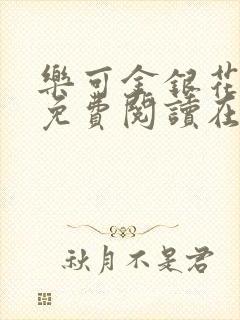 樂可金銀花
免費閱讀在
秋月不是君